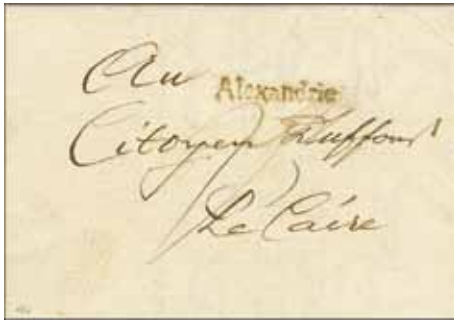 Au
Alexandrie
Citoyen
Le Caire